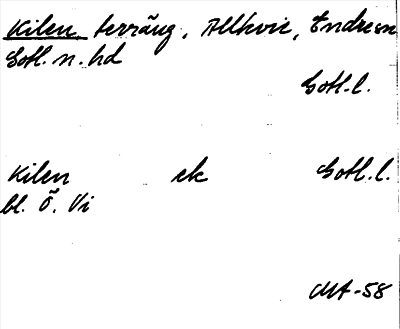 Kilen terräng, Allkvie, Endre sn
Gotl. n. hd
Gotl. l.
Kilen ek Gotl. l.
bl. Ö. Vi
MA-58